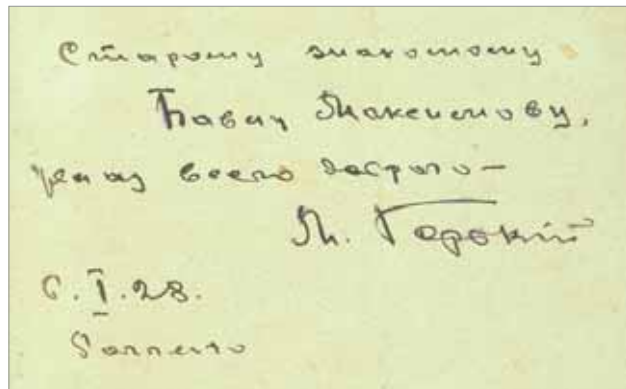 Старому знакомому
Павлу Максимову,
желаю всего доброго —
М. Горький
6.I.28.
Sorrento